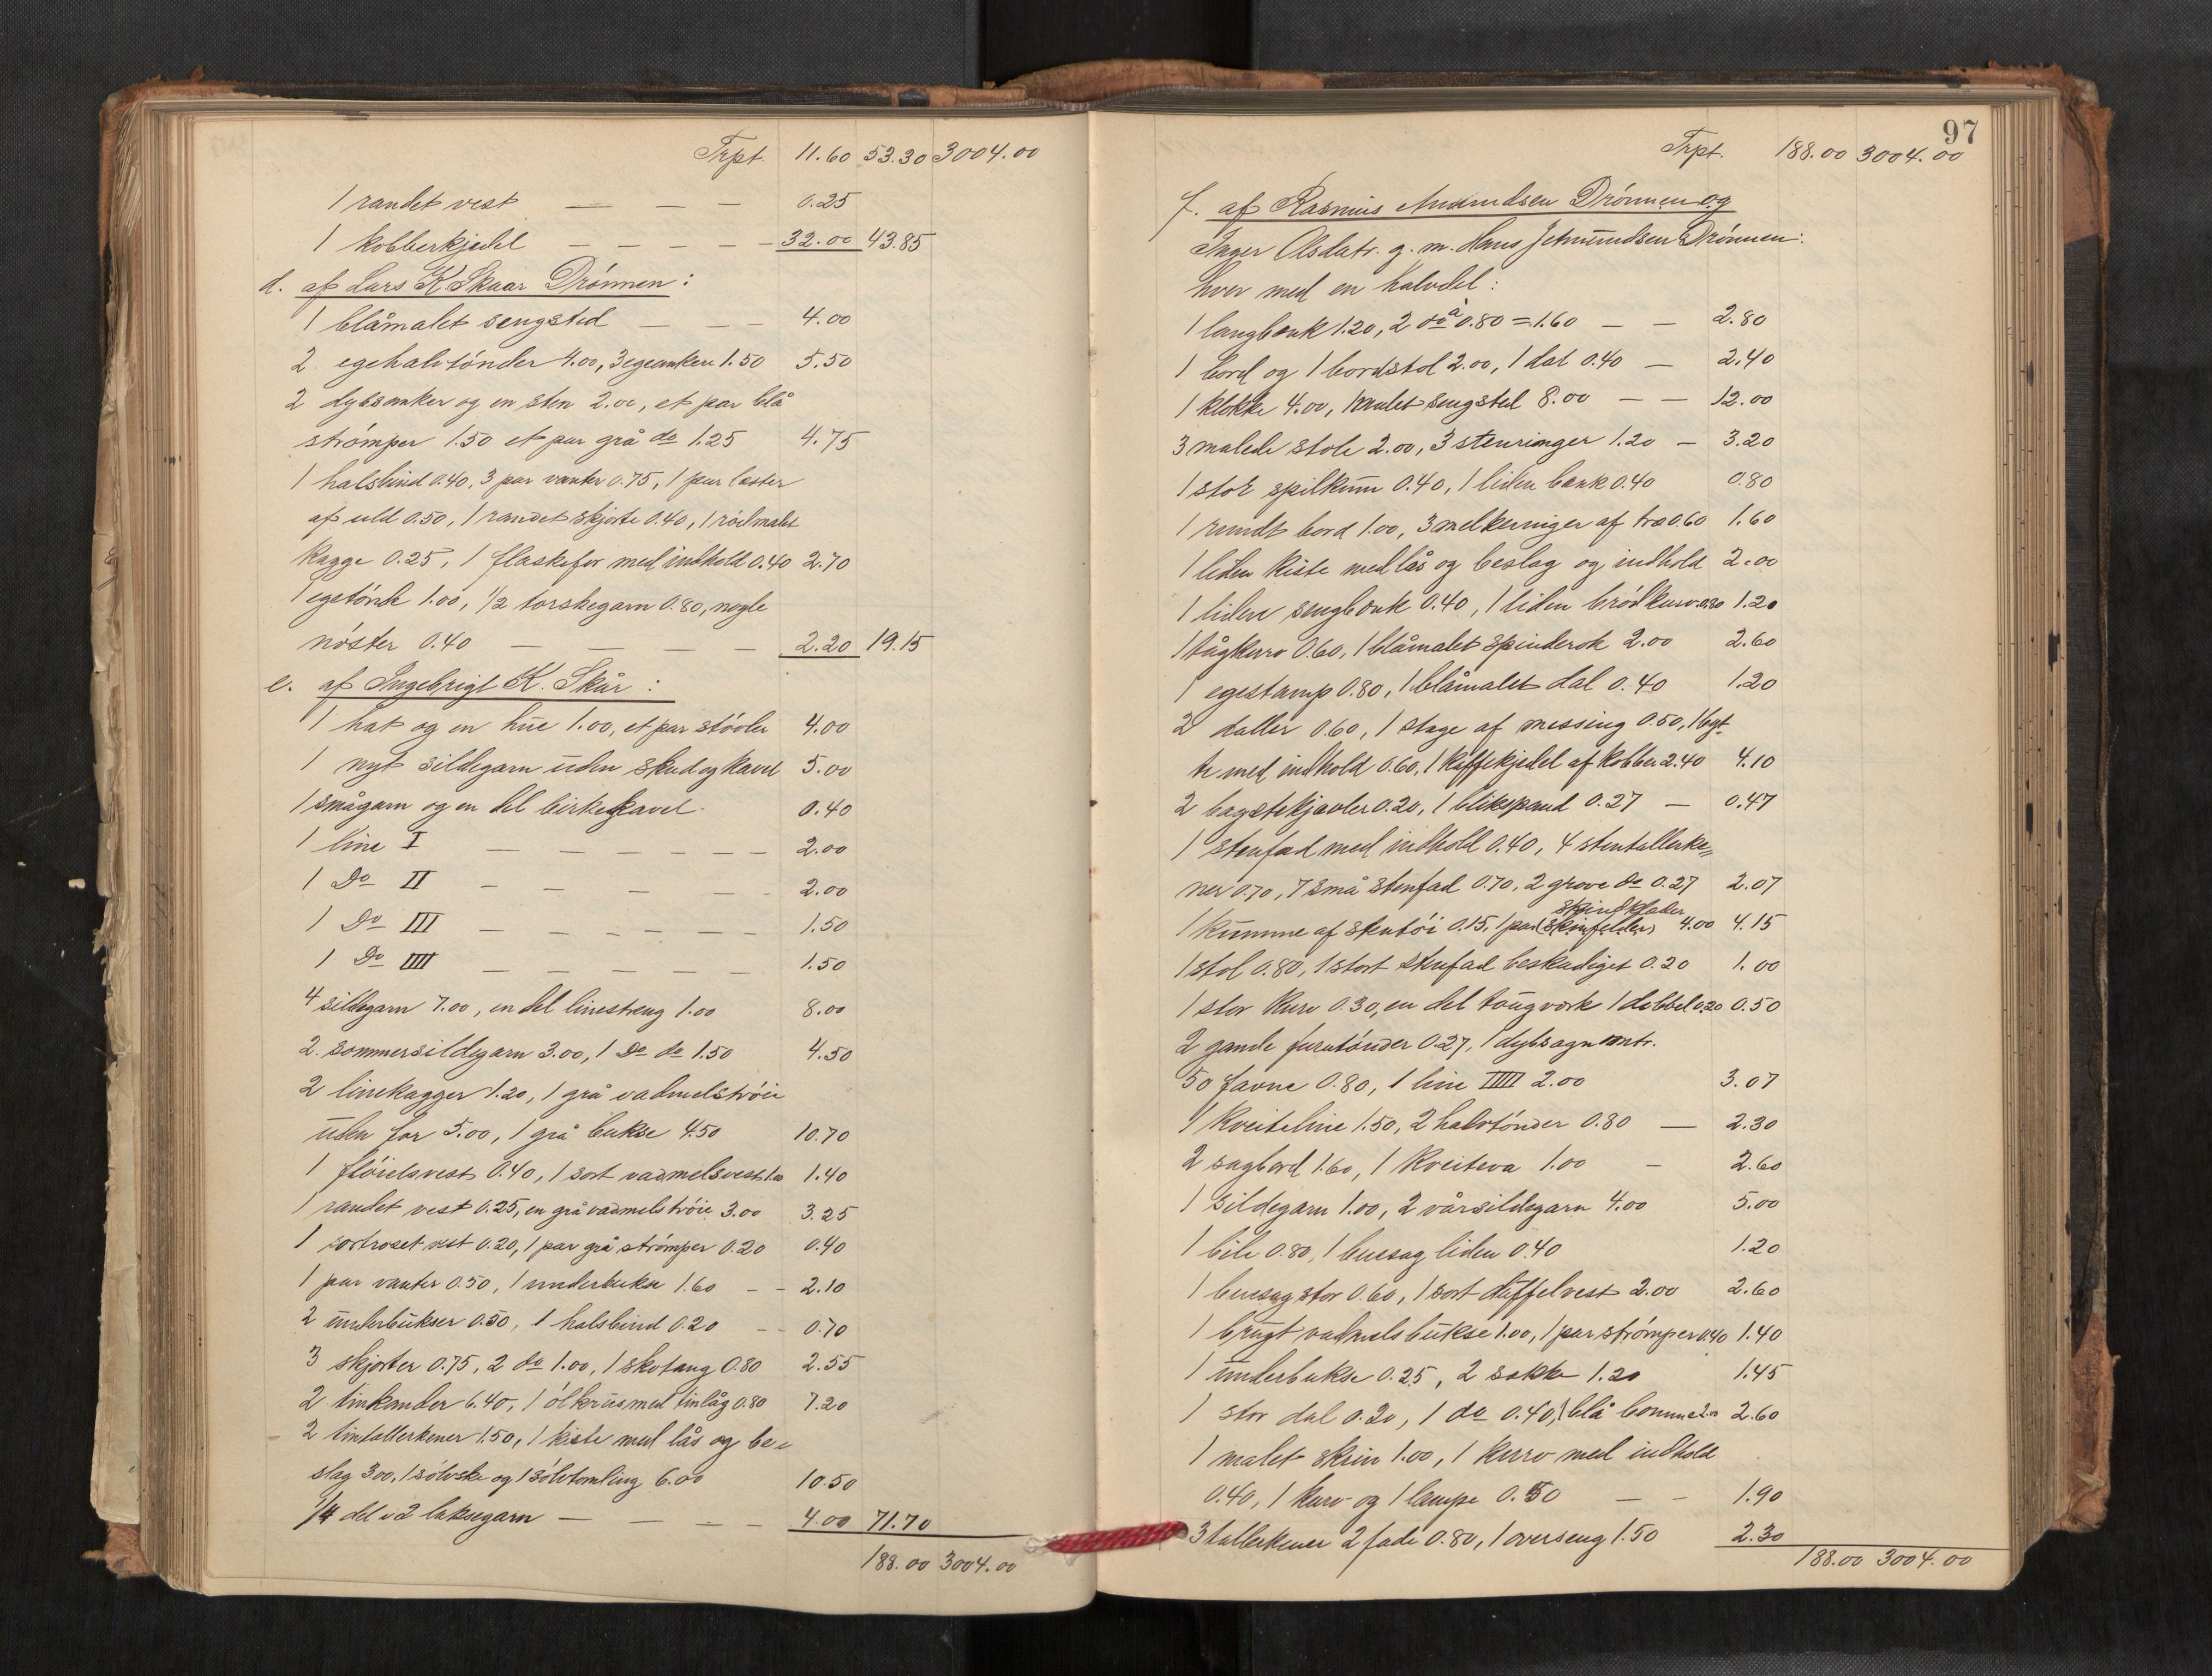 Trpt. 11.60 53.30 3004.00
1 randet vest — — — 0.25
1 kobberkjedel — — — — 32.00 43.85
d. af Lars K Skaar Drönnen:
1 blåmalet sengsted — — — 4.00
2 egehalvtönder 4.00, 3 egeankere 1.50 5.50
2 dybsanker og en sten 2.00, et par blå
strömper 1.50 et par grå do 1.25 4.75
1 halsbind 0.40, 3 par vanter 0.75, 1 par læster
af uld 0.50, 1 randet skjorte 0.40, 1 rödmalet
Kagge 0.25, 1 flaskefor med indhold 0.40 2.70
1 egetönde 1.00, 1/2 torskegarn 0.80, nogle
nöster 0.40 — — — — 2.20 19.15
e. af Ingebrigt K. Skår:
1 hat og en hue 1.00, et par stövler 4.00
1 nyt sildegarn uden skud og kavel 5.00
1 smågarn og en del birkekavel 0.40
1 line I — — — — — — 2.00
1 Do II — — — — — 2.00
1 Do III — — — — — — 1.50
1 Do IIII — — — — — — 1.50
4 sildegarn 7.00, en del linestreng 1.00 8.00
2 sommersildegarn 3.00, 1 Do do 1.50 4.50
2 linekagger 1.20, 1 grå vadmelströie
uden for 5.00, 1 grå bukse 4.50 10.70
1 flöielsvest 0.40, 1 sort vadmelsvest 1.00 1.40
1 randet vest 0.25, en grå vadmelströie 3.00 3.25
1 sortroset vest 0.20, 1 par grå strömper 0.20 0.40
1 par vanter 0.50, 1 underbukse 1.60 — — 2.10
2 underbukser 0.50, 1 halsbind 0.20 — — 0.70
3 skjorter 0.75, 2 do 1.00, 1 skotang 0.80 2.55
2 tinkander 6.40, 1 ölkrus med tinlåg 0.80 7.20
2 tintallerkener 1.50, 1 kiste med lås og be-
slag 3.00, 1 sölvske og 1 sölvtomling 6.00 10.50
1/4 del i 2 laksegarn — — — — 4.00 71.70
188.00 3004.00
97
Trpt. 188.00 3004.00
f. af Rasmus Amundsen Drönnen og
Inger Olsdatr. g. m. Hans Jetmundsen Drönnen:
hver med en halvdel:
1 langbænk 1.20, 2 do à 0.80 = 1.60 — — 2.80
1 bord og 1 bordstol 2.00, 1 dal 0.40 — 2.40
1 klokke 4.00, 1 malet sengsted 8.00 — — 12.00
3 malede stole 2.00, 3 stenringer 1.20 — 3.20
1 stor spilkum 0.40, 1 liden bænk 0.40 0.80
1 rundt bord 1.00, 3 melkeringer af træ 0.60 1.60
1 liden kiste med lås og beslag og indhold 2.00
1 liden sengbænk 0.40, 1 liden brödkurv 0.80 1.20
1 tågkurv 0.60, 1 blåmalet spinderok 2.00 2.60
1 egestamp 0.80, 1 blåmalet dal 0.40 1.20
2 daller 0.60, 1 stage af messing 0.50, 1 byt-
te med indhold 0.60, 1 kaffekjedel af kobber 2.40 4.10
2 bagstekjævler 0.20, 1 blikspand 0.27 — 0.47
1 stenfad med indhold 0.40, 4 stentallerke-
ner 0.70, 7 små stenfad 0.70, 2 grove do 0.27 2.07
skindklæder
1 kumme af stentöi 0.15, 1 par (skinfelder) 4.00 4.15
1 stol 0.80, 1 stort stenfad beskadiget 0.20 1.00
1 stor kurv 0.30, en del tougværk 1 dobbel 0.20 0.50
2 gamle furutönder 0.27, 1 dybsagn omtr.
50 favne 0.80, 1 line IIIII 2.00 3.07
1 kveiteline 1.50, 2 halvtönder 0.80 — 2.30
2 sagbord 1.60, 1 kveiteva 1.00 — 2.60
1 sildegarn 1.00, 2 vårsildegarn 4.00 5.00
1 bile 0.80, 1 buesag liden 0.40 1.20
1 buesag stor 0.60, 1 sort düffelvest 2.00 2.60
1 brugt vadmelsbukse 1.00, 1 par strömper 0.40 1.40
1 underbukse 0.25, 2 sække 1.20 1.45
1 stor dal 0.20, 1 do 0.40, 1 blå bomme 2.00 2.60
1 malet skrin 1.00, 1 kurv med indhold
0.40, 1 kurv og 1 lampe 0.50 — — 1.90
3 tallerkener 2 fade 0.80, 1 overseng 1.50 2.30
188.00 3004.00